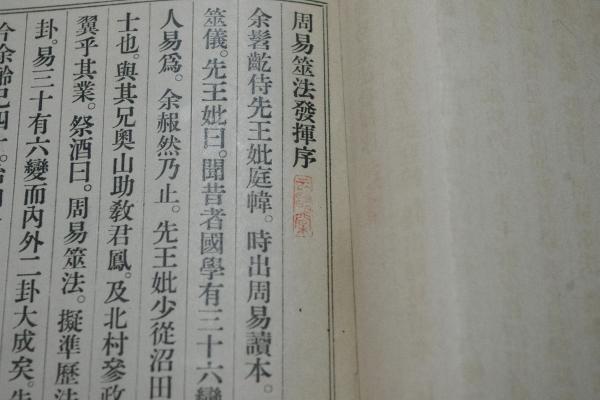 周易筮法發揮序
余髫齔侍先王妣庭幃。時出周易讀本。
筮儀。先王妣曰。聞昔者國學有三十六變
人易爲。余赧然乃止。先王妣少從沼田
士也。與其兄奥山助敎君鳳。及北村參政
翼乎其業。祭酒曰。周易筮法。擬準歷法
卦。易三十有六變而內外二卦大成矣。先
今余齡已四十。